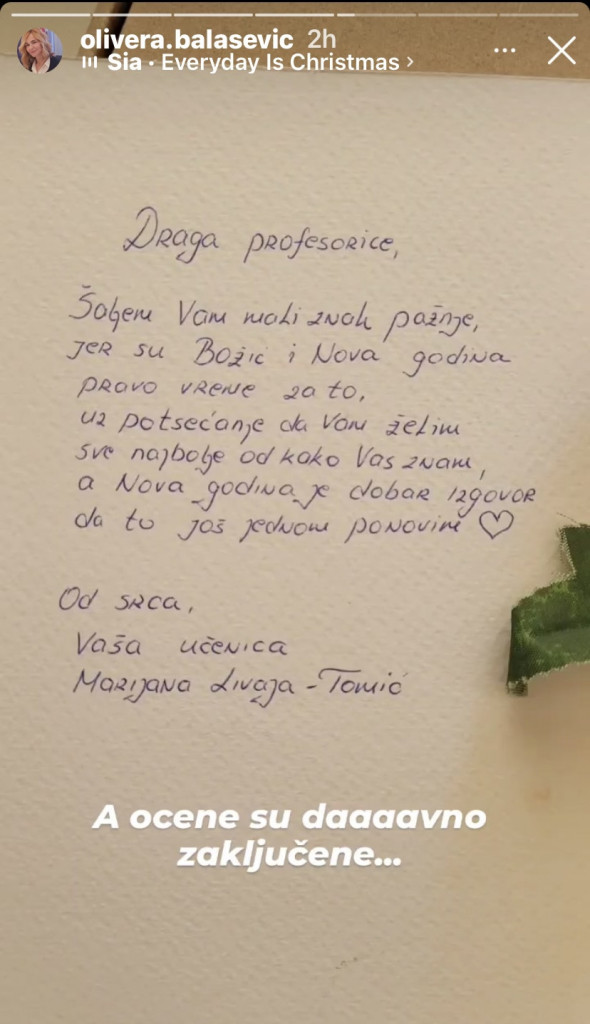 olivera.balasevic 2h
Sia · Everyday Is Christmas
Draga profesorice,
Šaljem Vam mali znak pažnje,
jer su Božić i Nova godina
pravo vreme za to,
uz potsećanje da Vam želim
sve najbolje od kako Vas znam,
a Nova godina je dobar izgovor
da to još jednom ponovim
Od srca,
Vaša učenica
Marijana Livaja-Tomić
A ocene su daaaavno
zaključene...